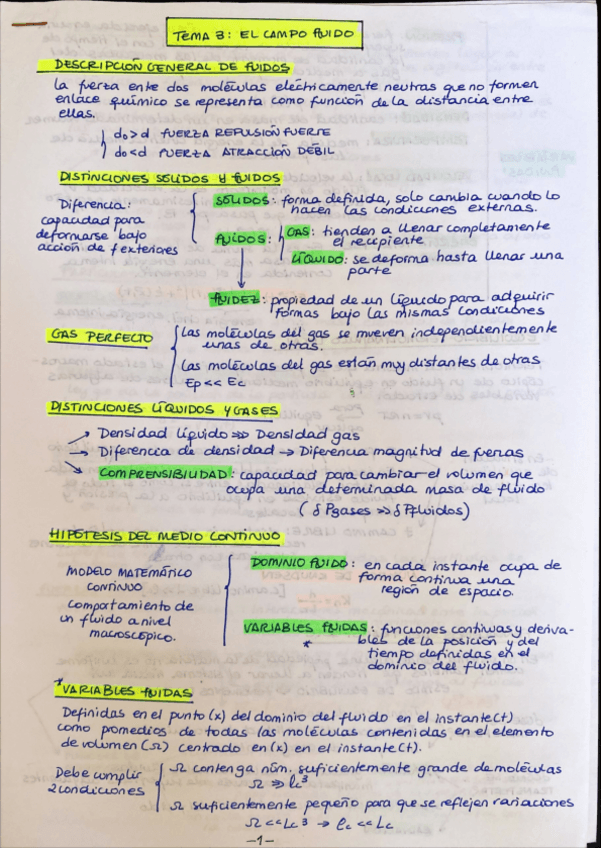 TEMA 3: EL CAMPO FLUIDO
DESCRIPCIÓN GENERAL DE FLUIDOS
La fuerza entre dos moléculas eléctricamente neutras que no formen
enlace químico se representa como función de la distancia entre
ellas.
do > d FUERZA REPULSIÓN FUERTE
do < d FUERZA ATRACCIÓN DÉBIL
DISTINCIONES SÓLIDOS Y FLUIDOS
Diferencia:
capacidad para
deformarse bajo
acción de f exteriores
SÓLIDOS: forma definida, solo cambia cuando lo
hacen las condiciones externas.
FLUÍDOS:
GAS: tienden a llenar completamente
el recipiente
LÍQUIDO: se deforma hasta llenar una
parte
FLUIDEZ: propiedad de un líquido para adquirir
formas bajo las mismas condiciones
GAS PERFECTO
Las moléculas del gas se mueven independientemente
unas de otras.
Las moléculas del gas están muy distantes de otras
Ep << Ec
DISTINCIONES LÍQUIDOS Y GASES
→ Densidad líquido >>> Densidad gas
→ Diferencia de densidad → Diferencia magnitud de fuerzas
→ COMPRENSIBILIDAD: capacidad para cambiar el volumen que
ocupa una determinada masa de fluido
(δ Pgases >>> δ Pfluidos)
HIPÓTESIS DEL MEDIO CONTINUO
MODELO MATEMÁTICO
CONTÍNUO
comportamiento de
un fluido a nivel
macroscópico.
DOMINIO FLUIDO: en cada instante ocupa de
forma continua una
región de espacio.
VARIABLES FLUIDAS: funciones continuas y deriva-
* bles de la posición y del
tiempo definidas en el
dominio del fluido.
*VARIABLES FLUIDAS
Definidas en el punto (x) del dominio del fluido en el instante (t)
como promedios de todas las moléculas contenidas en el elemento
de volumen (Ω) centrado en (x) en el instante (t).
Debe cumplir
2 condiciones
Ω contenga núm. suficientemente grande de moléculas
Ω >> lc³
Ω suficientemente pequeño para que se reflejen variaciones
Ω << Lc³ → lc << Lc
-1-